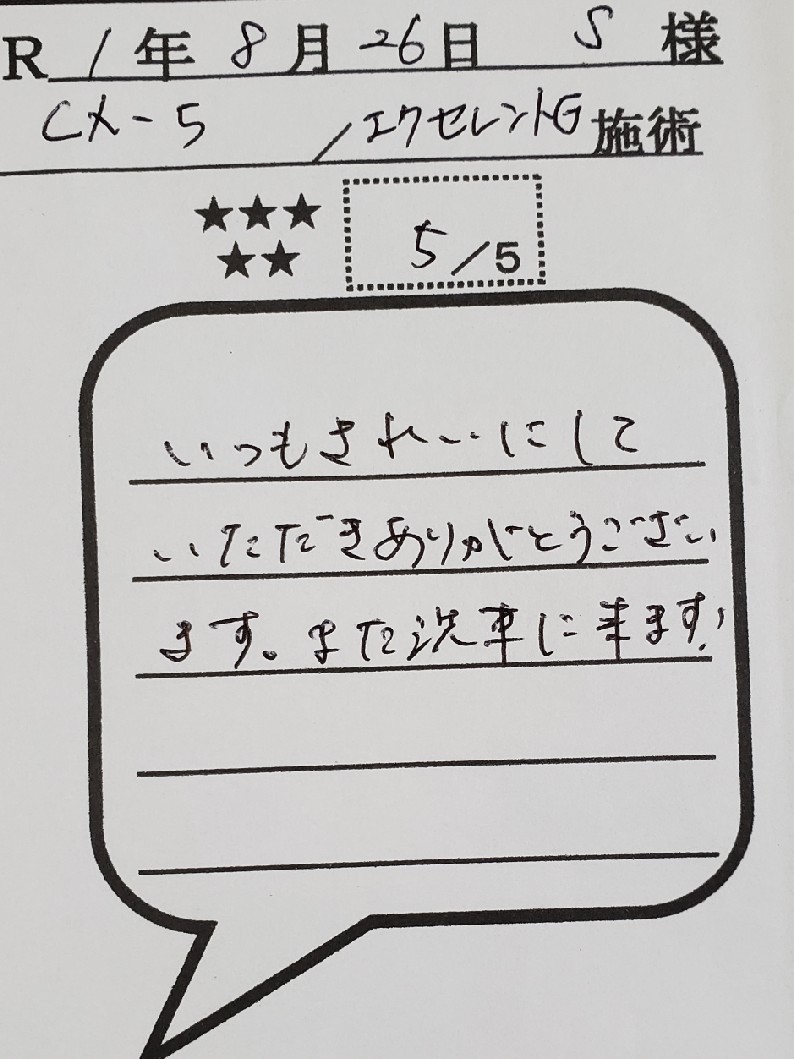 R 1年 8月 26日 S 様
CX-5 /エクセレントG 施術
★★★
★★
5/5
いつもきれいにして
いただきありがとうござい
ます。また洗車に来ます!